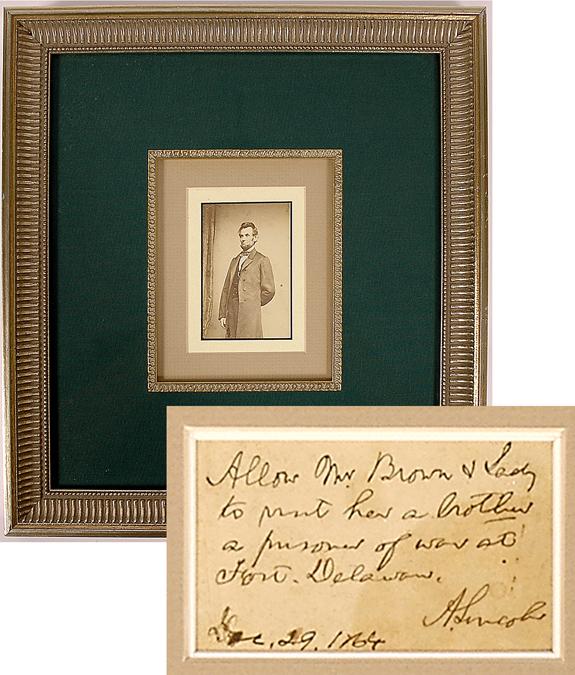 Allow Mr. Brown & Lady
to visit her a brother
a prisoner of war at
Fort. Delaware.
A. Lincoln
Dec. 29. 1864